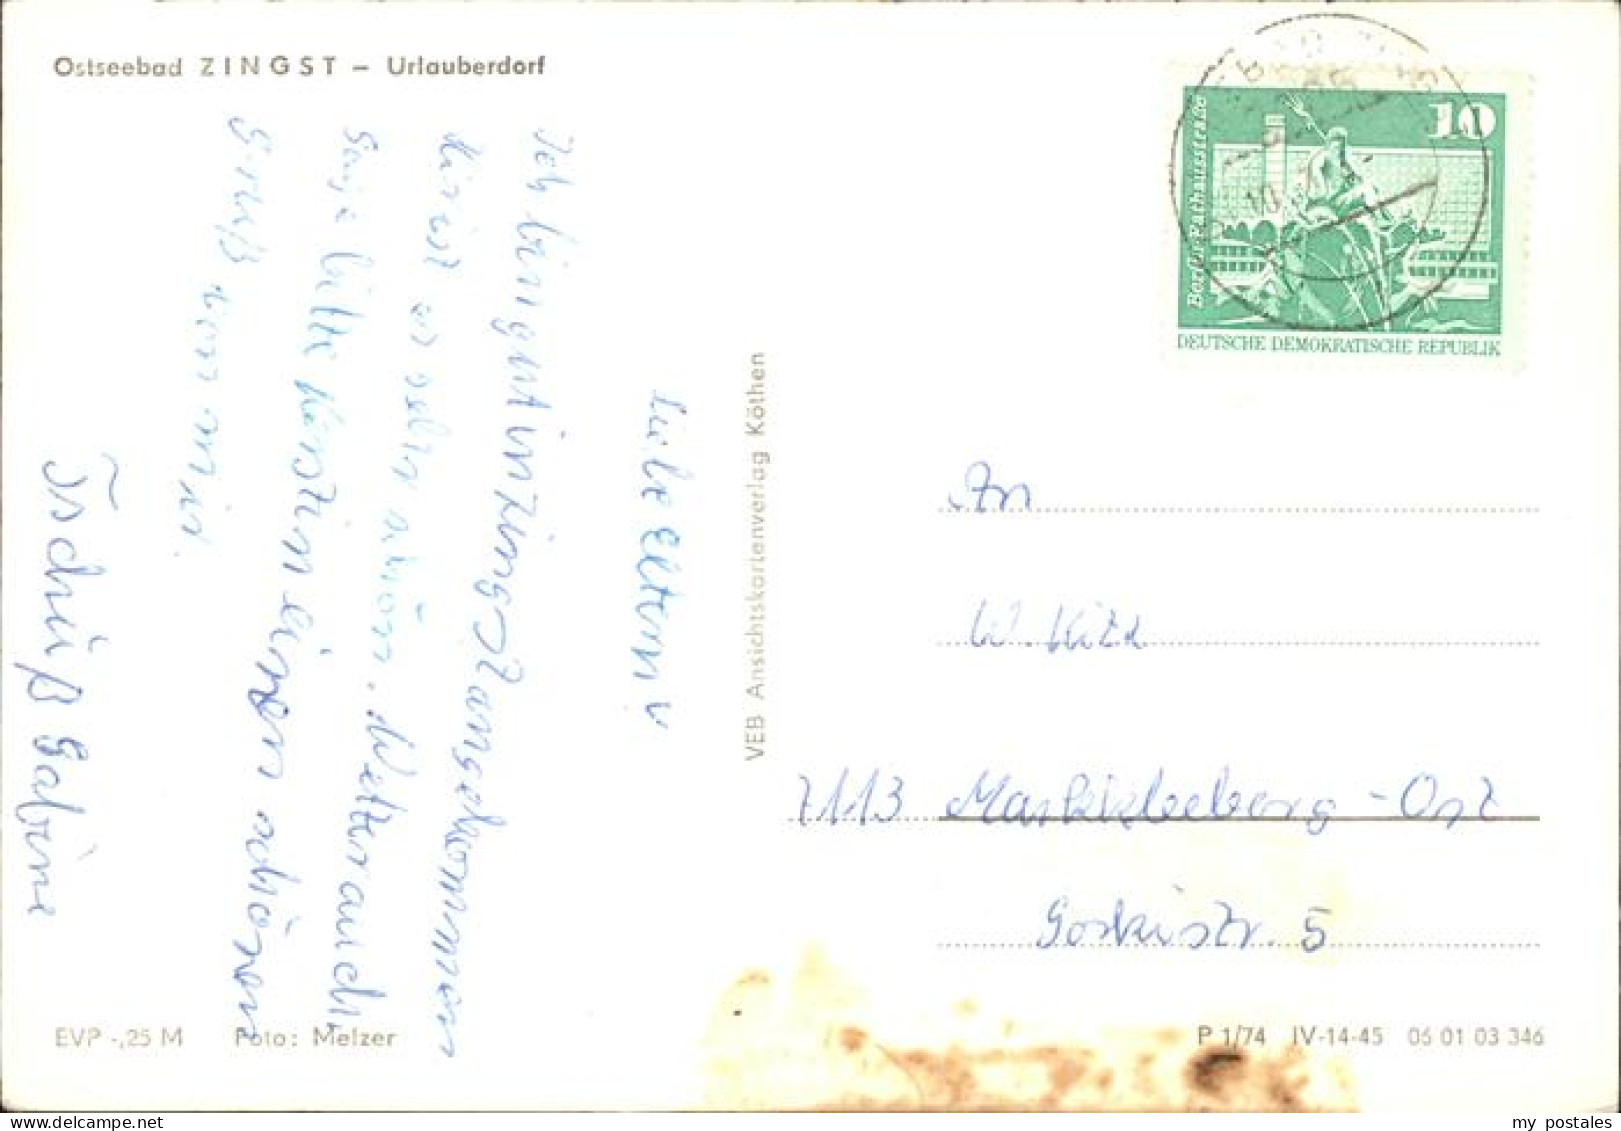 Ostseebad ZINGST – Urlauberdorf
Liebe Eltern!
Ich bin gut in Zingst angekommen
hir ist es sehr schön. Wetter auch,
Sage bitte Kerstin einen schönen
Gruß von mir.
Tschüß Gabine
VEB Ansichtskartenverlag Köthen
10
Berlin, Rathausstraße
DEUTSCHE DEMOKRATISCHE REPUBLIK
An
W.
7113 Markkleeberg-Ost
Gorkistr. 5
EVP -,25 M Foto: Melzer
P 1/74 IV-14-45 06 01 03 346
my postales